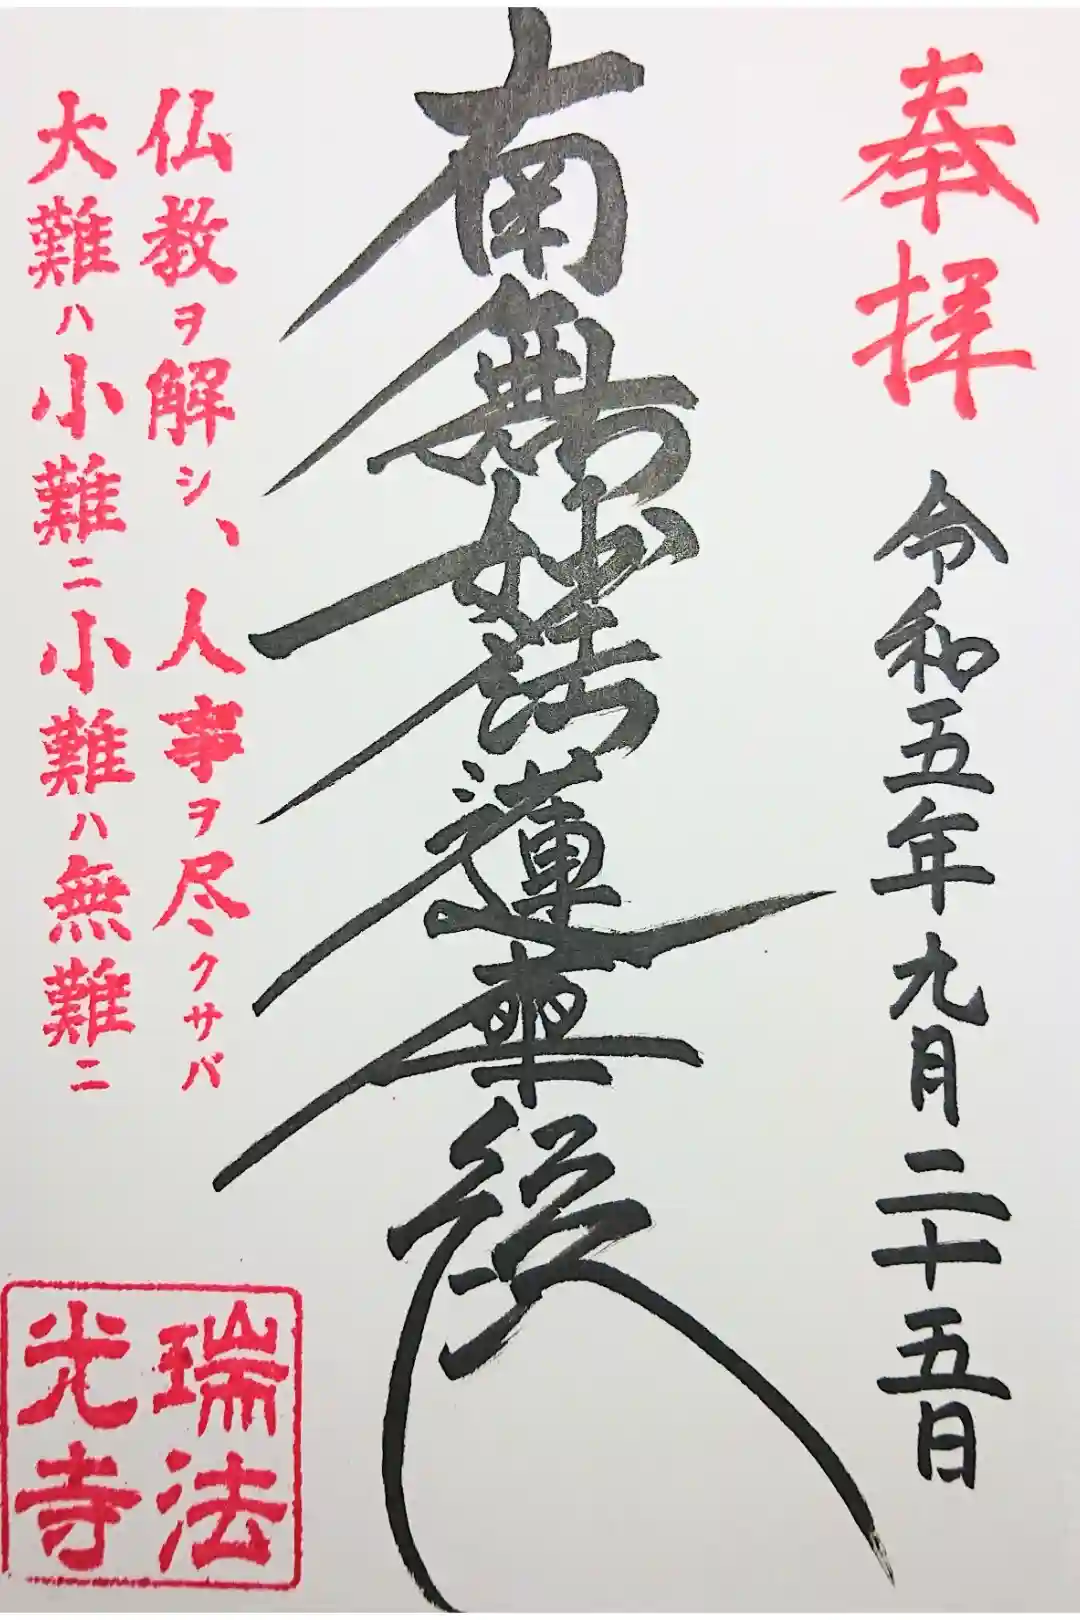 奉拝
令和五年九月二十五日
南無妙法蓮華経
仏教ヲ解シ、人事ヲ尽クサバ
大難ハ小難ニ小難ハ無難ニ
瑞法
光寺